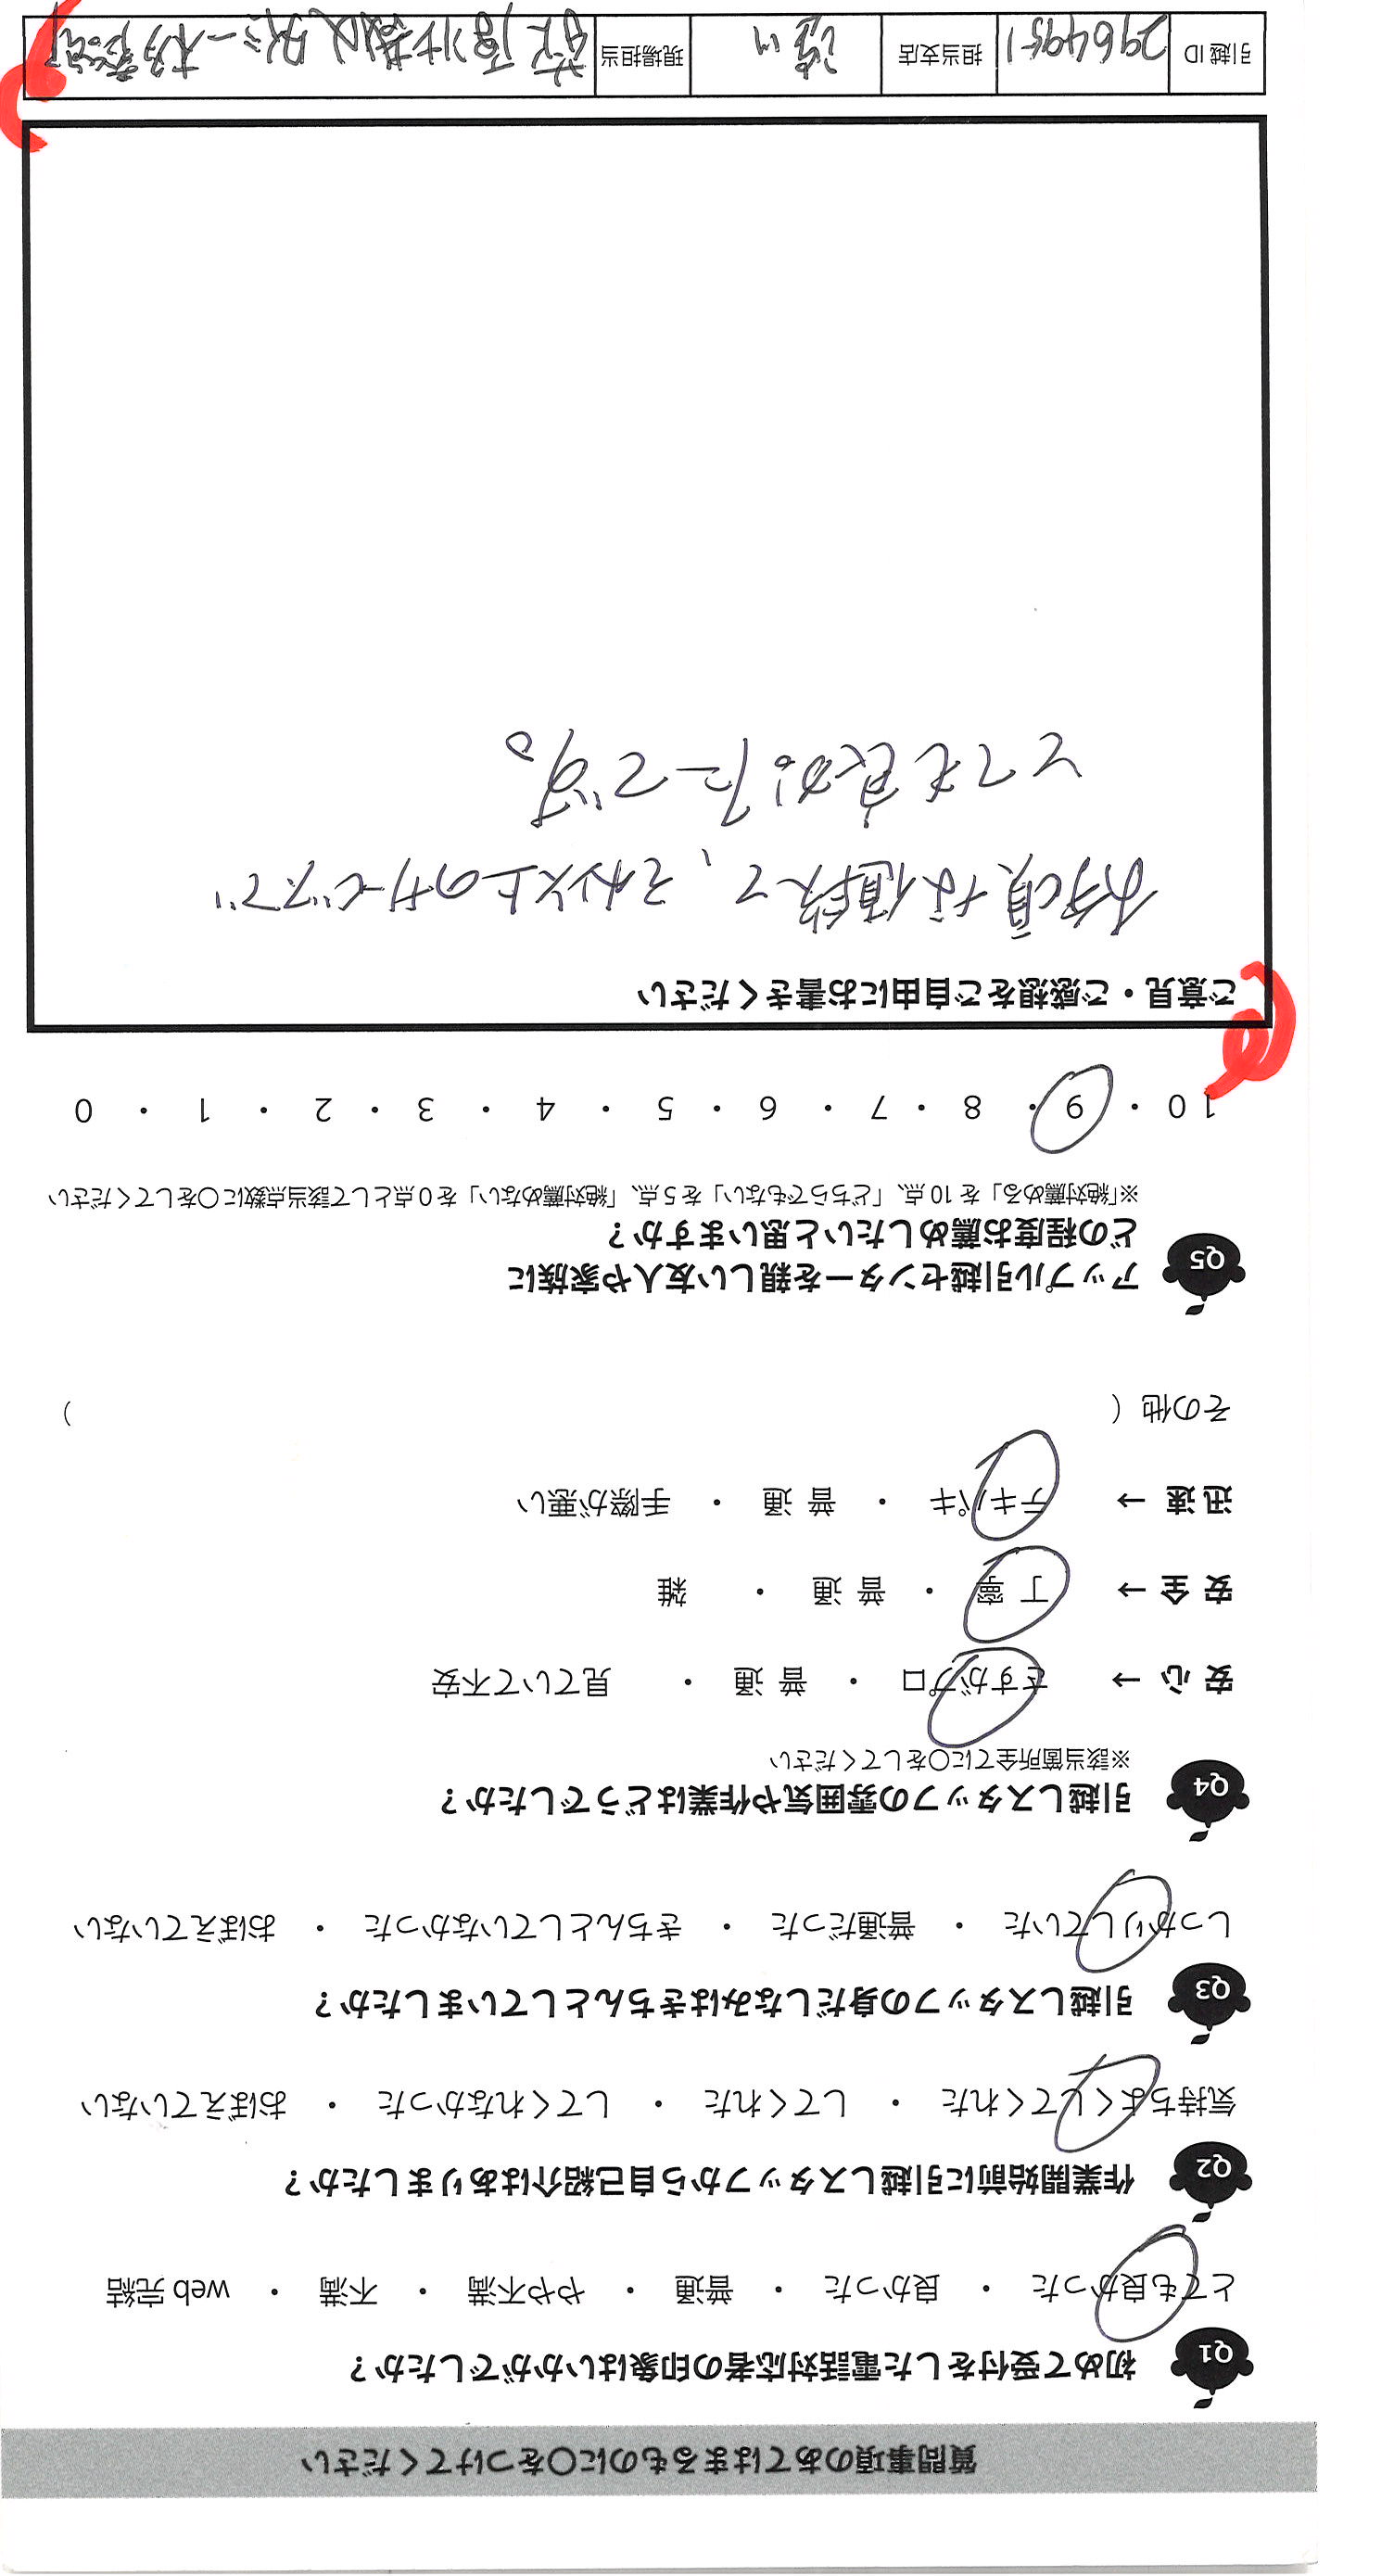 質問事項のあてはまるものに○をつけてください
Q1 初めて受付をした電話対応者の印象はいかがでしたか？
とても良かった ・ 良かった ・ 普通 ・ やや不満 ・ 不満 ・ web 完結
Q2 作業開始前に引越しスタッフから自己紹介はありましたか？
気持ちよくしてくれた ・ してくれた ・ してくれなかった ・ おぼえていない
Q3 引越しスタッフの身だしなみはきちんとしていましたか？
しっかりしていた ・ 普通だった ・ きちんとしていなかった ・ おぼえていない
Q4 引越しスタッフの雰囲気や作業はどうでしたか？
※該当箇所全てに○をしてください
安心 → さすがプロ ・ 普通 ・ 見ていて不安
安全 → 丁寧 ・ 普通 ・ 雑
迅速 → テキパキ ・ 普通 ・ 手際が悪い
その他（ ）
Q5 アップル引越センターを親しい友人や家族に
どの程度お薦めしたいと思いますか？
※「絶対薦める」を 10 点、「どちらでもない」を 5 点、「絶対薦めない」を 0 点として該当点数に○をしてください
10 ・ 9 ・ 8 ・ 7 ・ 6 ・ 5 ・ 4 ・ 3 ・ 2 ・ 1 ・ 0
ご意見・ご感想をご自由にお書きください
お手頃な値段で、それ以上のサービスで
とても良かったです。
引越 ID 2964951 担当支店 現場担当